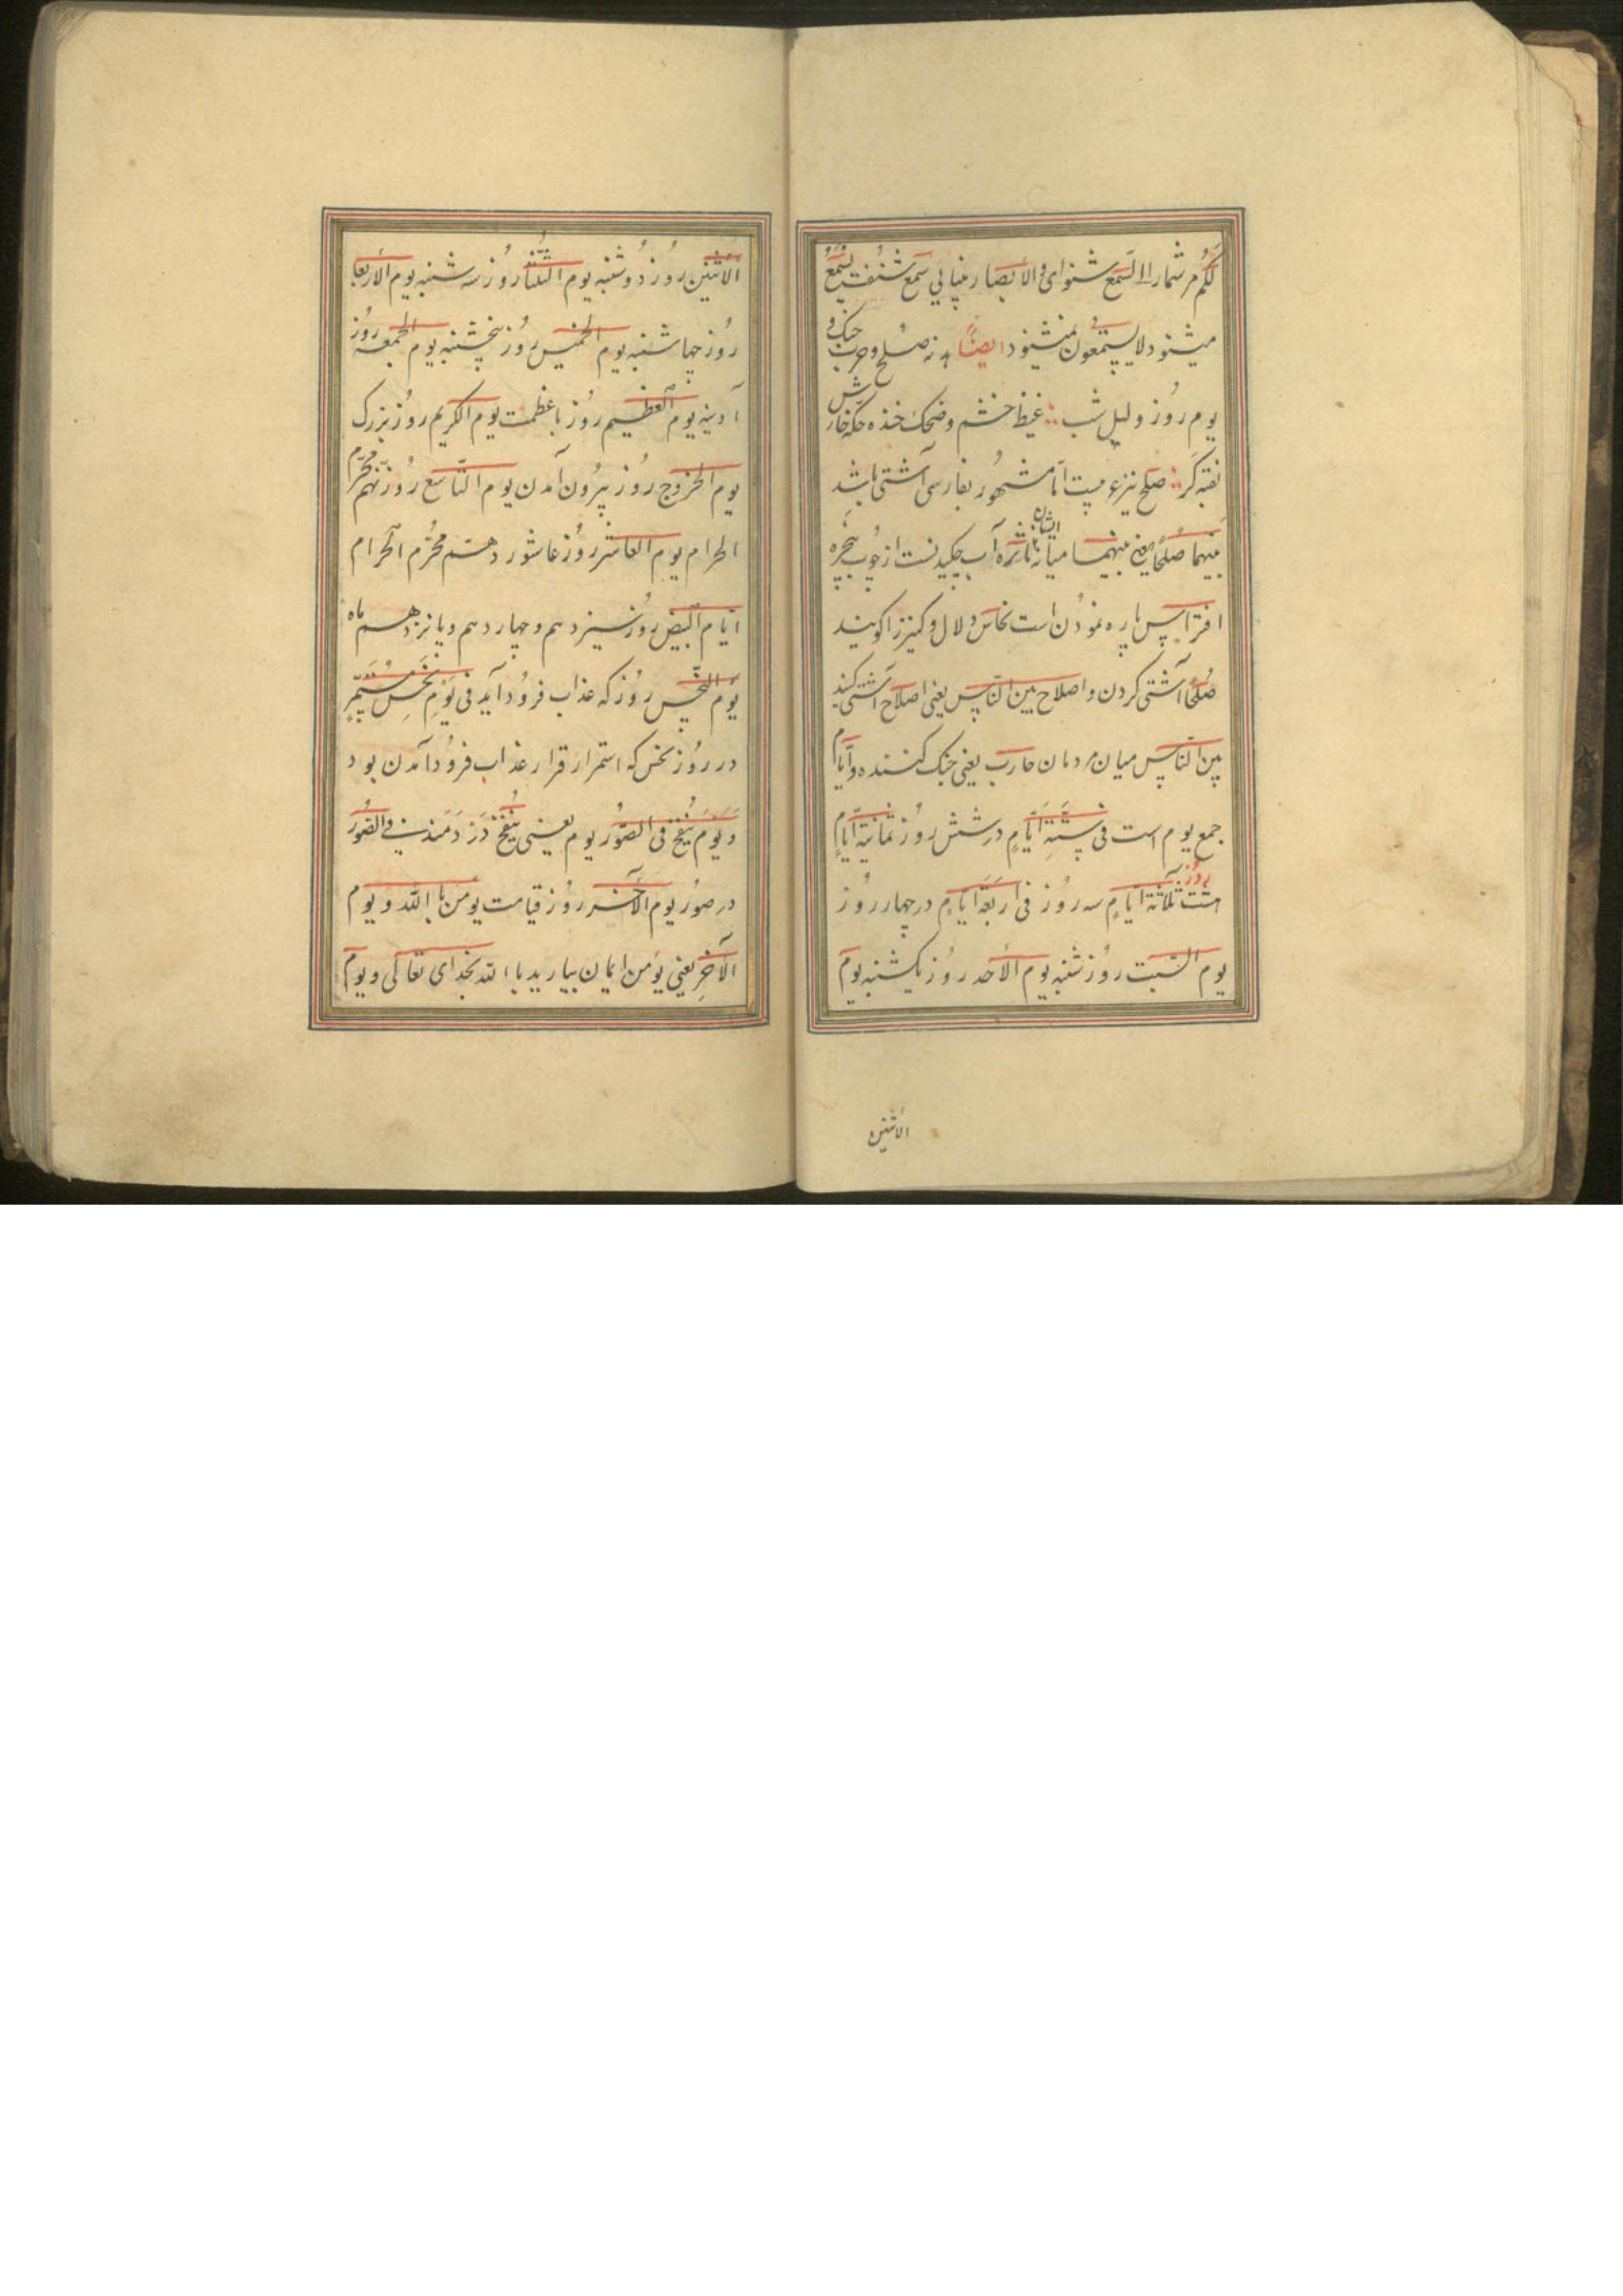 لکم مر شمارا السمع شنوای و الابصار بینایی سمع شنفت یسمع
میشنود لا یستمعون نمیشنود ایضاً هدنه صلح و حرب جنک و
یوم روز و لیل شب غیظ خشم و ضحک خنده حکه خارش
صلح نیز عربیست امّا مشهور بفارسی آشتی باشد
بینهما صلحاً یعنی بینهما میانه ایشان آب چکیدنست از چوب پنجره
افتراس پاره نمودن است نخاس دلال و کنیز را کویند
صُلحاً آشتی کردن و اصلاح بین النّاس یعنی اصلاح آشتی کنید
بین النّاس میان مردمان حارب یعنی جنک کننده و ایّام
جمع یوم است فی ستّة ایّامٍ در شش روز ثمانیة ایّامٍ
هشت روز ثلاثة ایّامٍ سه روز فی اربعة ایّامٍ در چهار روز
یوم السّبت روز شنبه یوم الأحد روز یکشنبه یوم
الاثنین
الأثنین روز دوشنبه یوم الثلثا روز سه شنبه یوم الأربعا
روز چهاشنبه یوم الخمیس روز پنجشنبه یوم الجمعه روز
آدینه یوم العظیم روز با عظمت یوم الکریم روز بزرک
یوم الخروج روز بیرون آمدن یوم التّاسع روز نهم محرّم
الحرام یوم العاشر روز عاشور دهم محرّم الحرام
ایّام البیض روز سیزدهم و چهاردهم و پانزدهم ماه
یوم النّحس روز که عذاب فرود آید فی یَومِ نَحسٍ مُستَمِرٍّ
در روز نحس که استمرار قرار عذاب فرود آمدن بود
وَ یَومَ یُنفَخُ فی الصّور یوم یعنی یُنفَخُ دَر دَمَند فی الصّور
در صور یوم الآخر روز قیامت یؤمن باالله و یوم
الآخِر یعنی یؤمن ایمان بیارید باالله بخدای تعالی و یوم